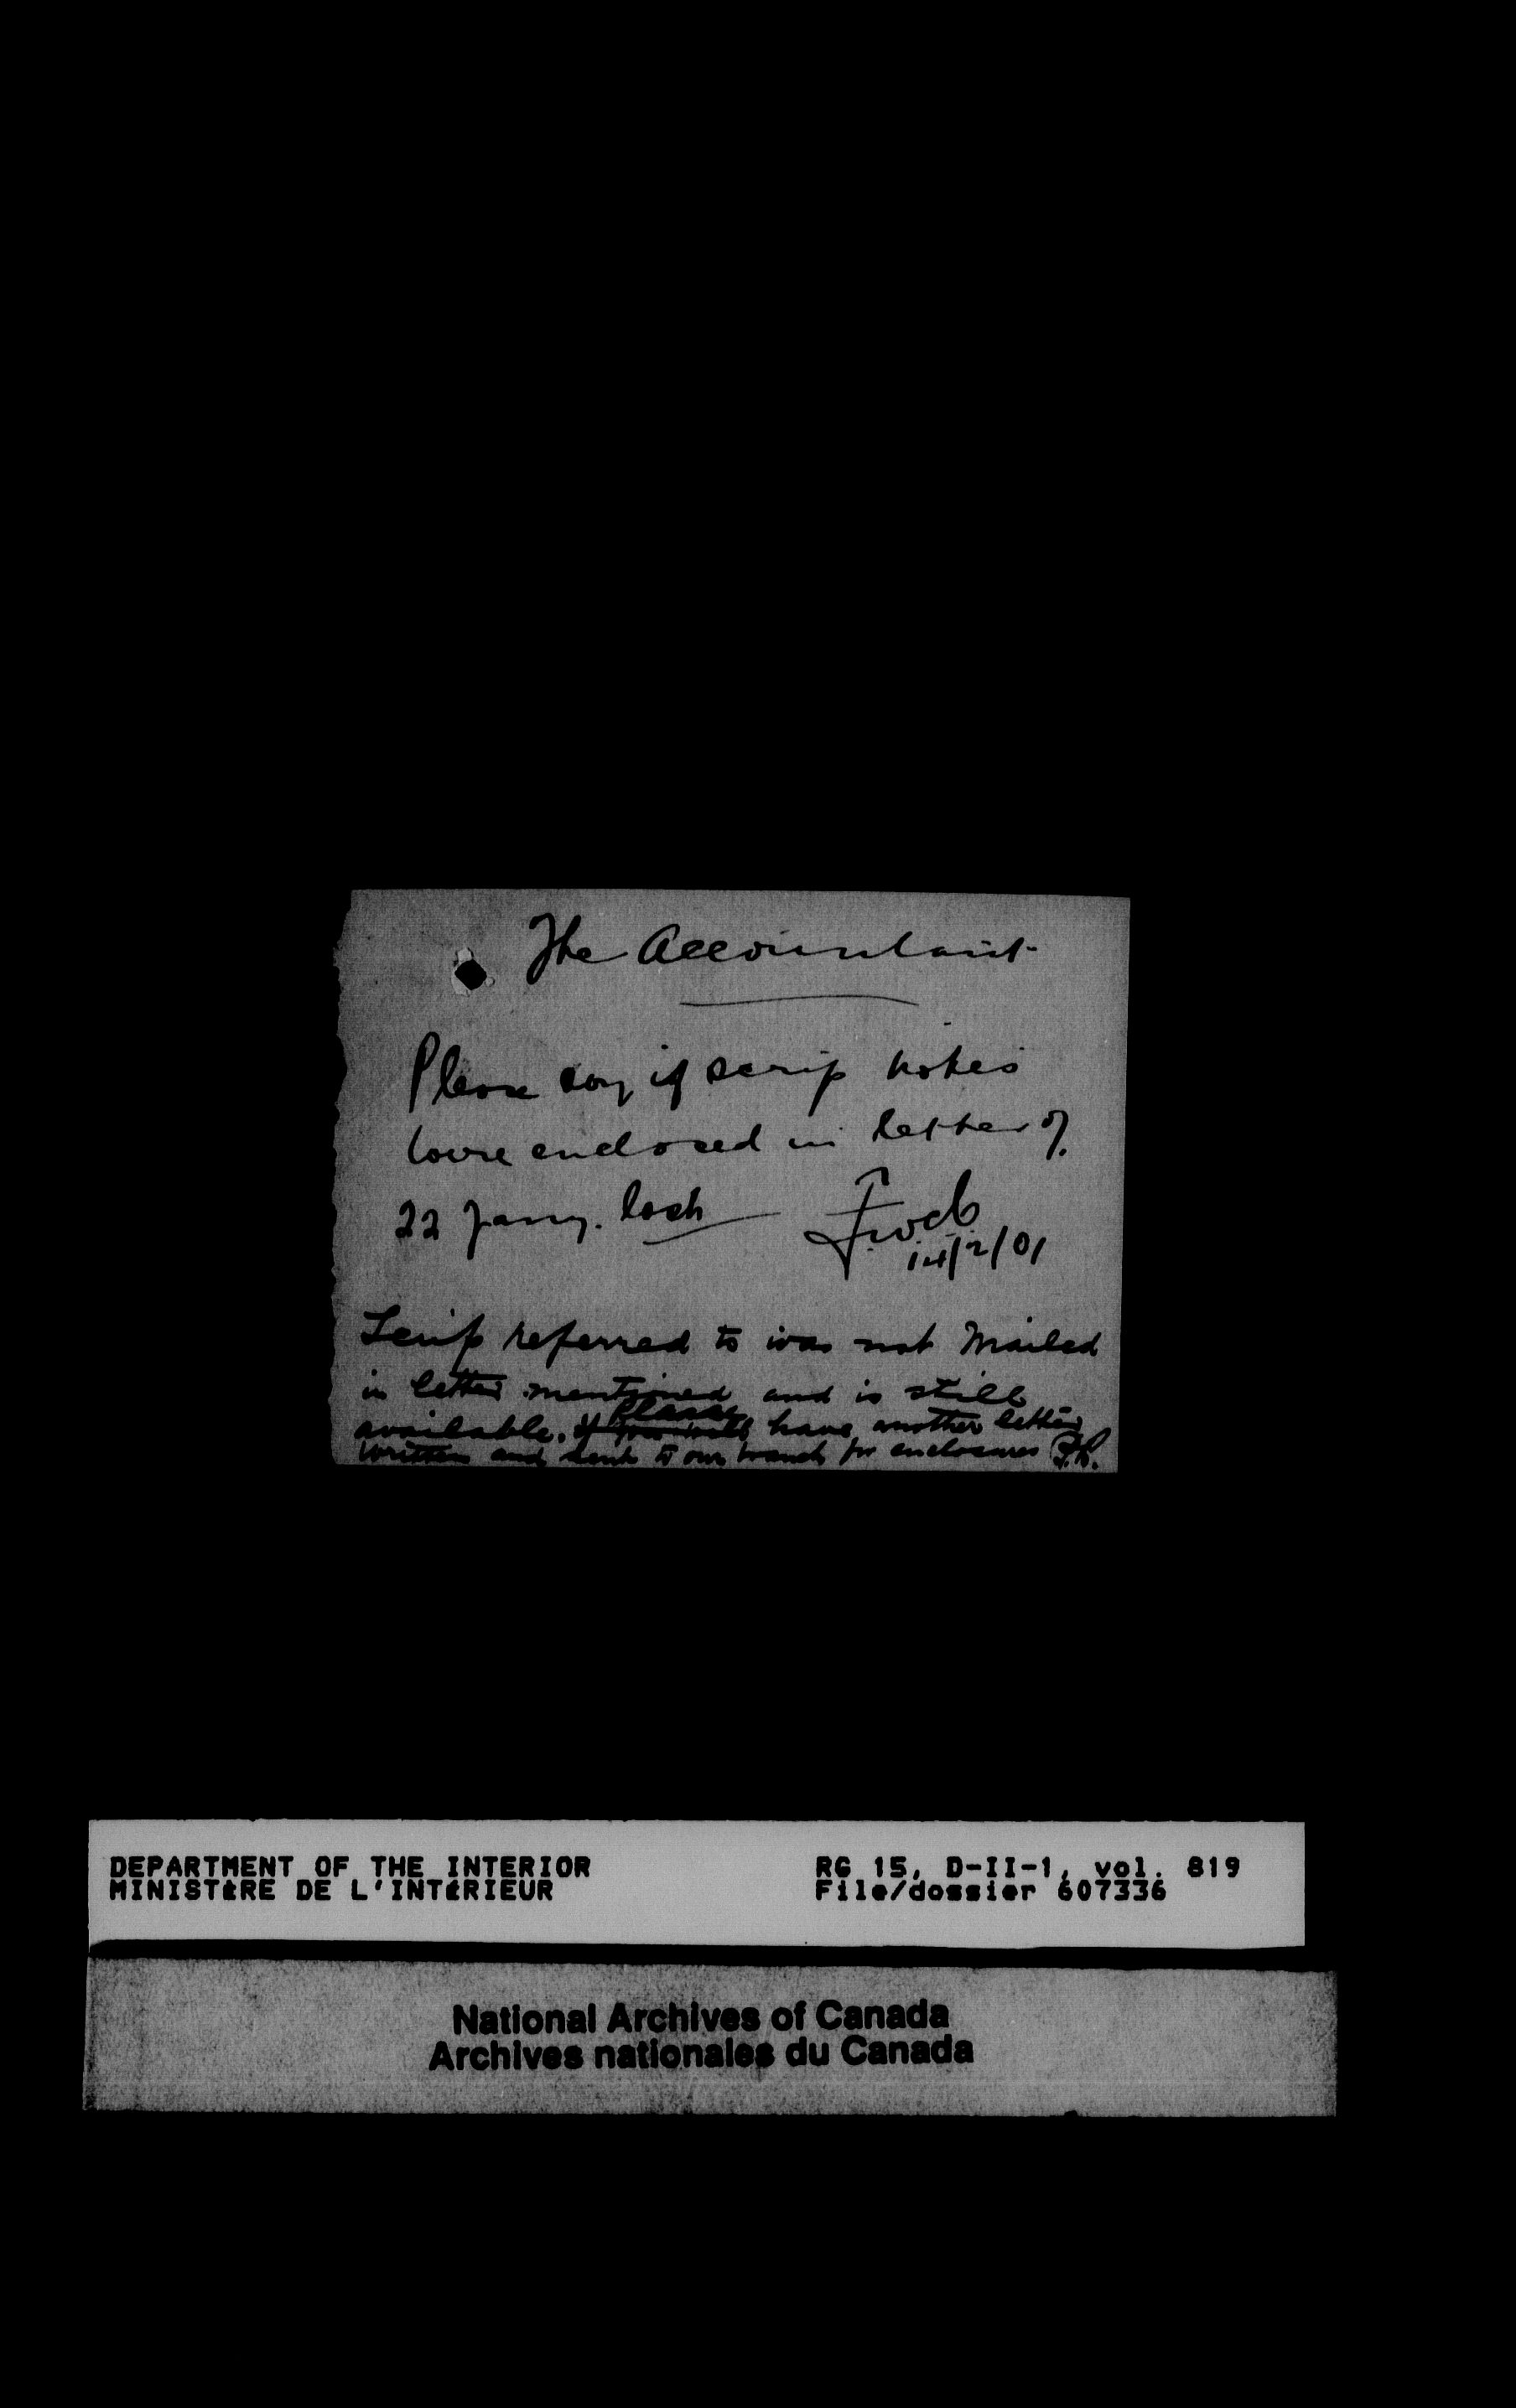 The Accountant
Please say if scrip notes
were enclosed in letter of
22 Jany. last
14/2/01
Scrip referred to was not mailed
in letter mentioned and is still
Please
available. If you will have another letter
written and sent to our branch for enclosures
DEPARTMENT OF THE INTERIOR
MINISTÈRE DE L'INTÉRIEUR
RG 15, D-II-1, vol. 819
File/dossier 607336
National Archives of Canada
Archives nationales du Canada